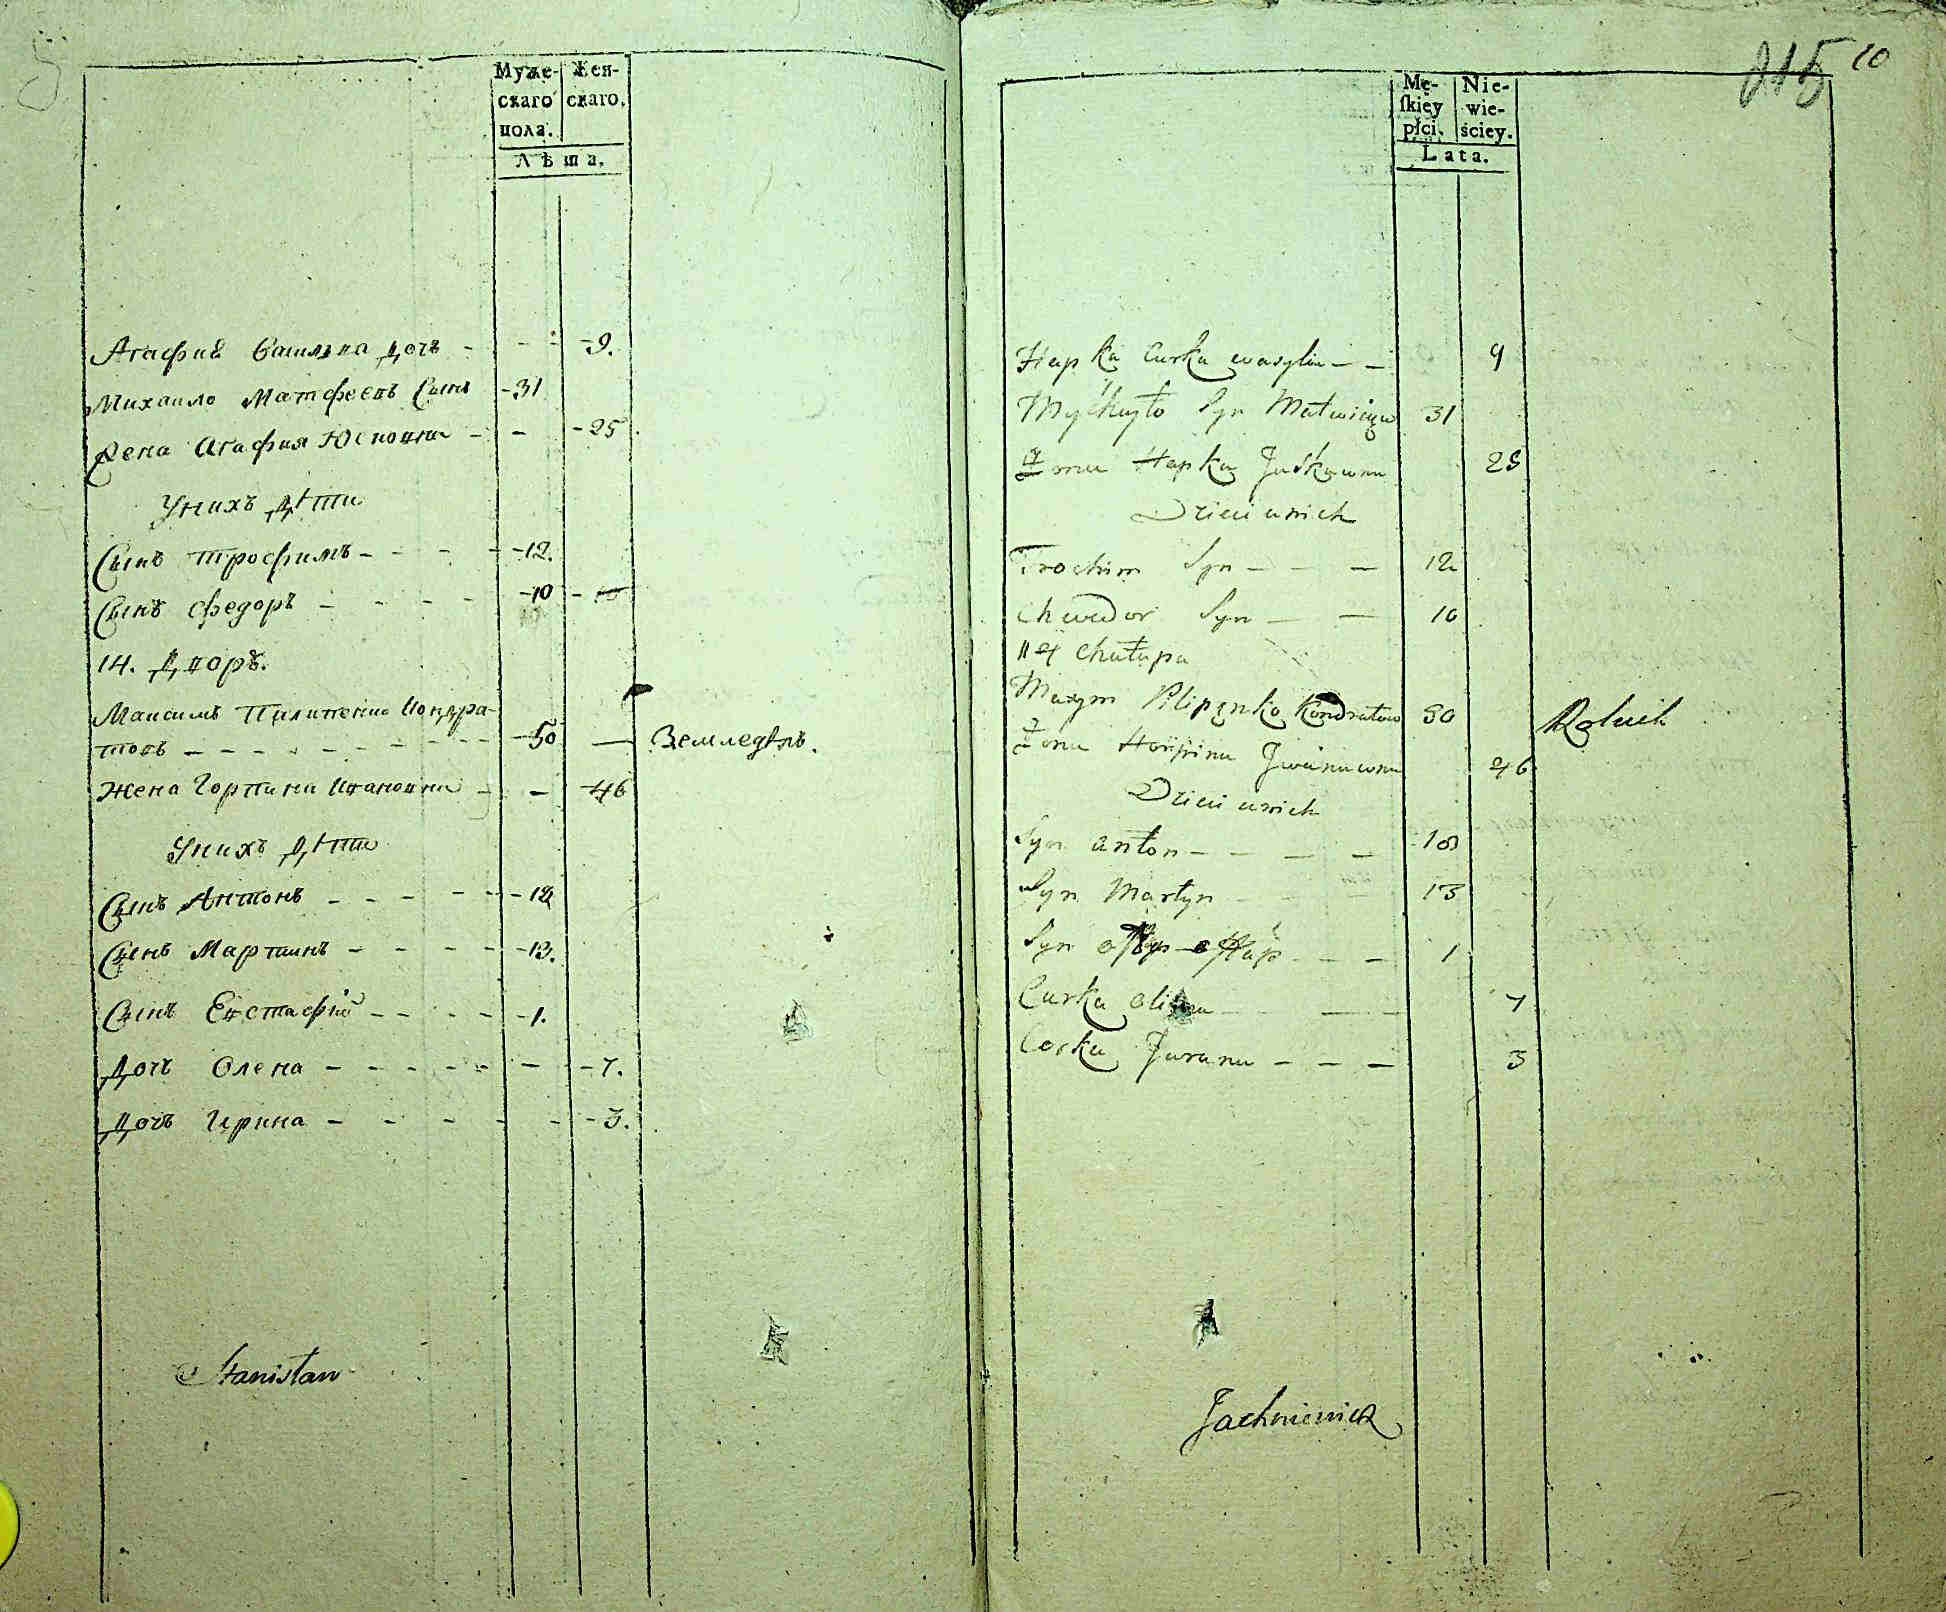 Муже-
скаго
пола.
Жен-
скаго.
Лѣта.
Агафия Василева дочь - - - - 9.
Михаило Матфеевъ Сынъ - 31
Жена Агафия Юсковна - - - 25
У нихъ дѣти
Сынъ Трофимъ - - - - 12.
Сынъ Федоръ - - - - 10 -
14. Дворъ.
Максимъ Пилипенко Кондра-
товъ - - - - - - - 50 — Земледѣлъ.
Жена Горпина Ивановна - - 46
У нихъ дѣти
Сынъ Антонъ - - - - - 18
Сынъ Мартинъ - - - - - 13.
Сынъ Евстафій - - - - - 1.
Дочь Олена - - - - - - - 7.
Дочь Ирина - - - - - - 3.
Stanisław
215 10
Mę-
ſkiey
płci.
Nie-
wie-
ściey.
Lata.
Hapka Curka wasylia - - 9
Mychayło Syn Matwieiow 31
Żona Hapka Juśkowna 25
Dzieci u nich
Trochim Syn - - - 12
Chwedor Syn - - 10
14 Chałupa
Maxym Pilipenko Kondratow 50 Rolnik
Żona Horpina Jwanowna 46
Dzieci u nich
Syn anton - - - - 18
Syn Martyn - - - 13
Syn - - - 1
Curka olena - - - 7
Corka Jaryna - - - 3
Jachniewicz